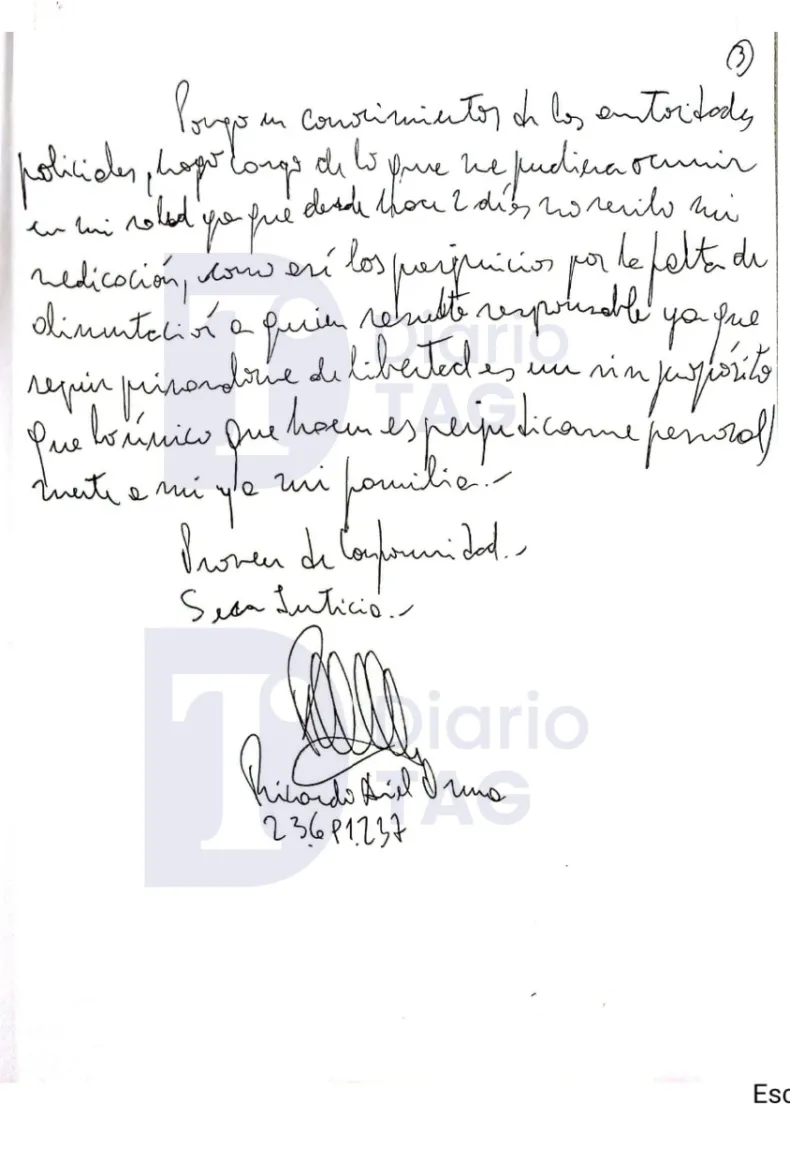 3
Pongo en conocimientos de las autoridades
policiales, hago cargo de lo que me pudiera ocurrir
en mi salud ya que desde hace 2 días no recibo mi
medicación, como así los perjuicios por la falta de
alimentación a quien resulte responsable ya que
seguir privandome de libertad es un sin propósito
que lo único que hacen es perjudicarme personal
mente a mi y a mi familia.-
Proveer de Conformidad.-
Sera Justicia.-
Ricardo Ariel
Diario
TAG
Diario
TAG
Esc